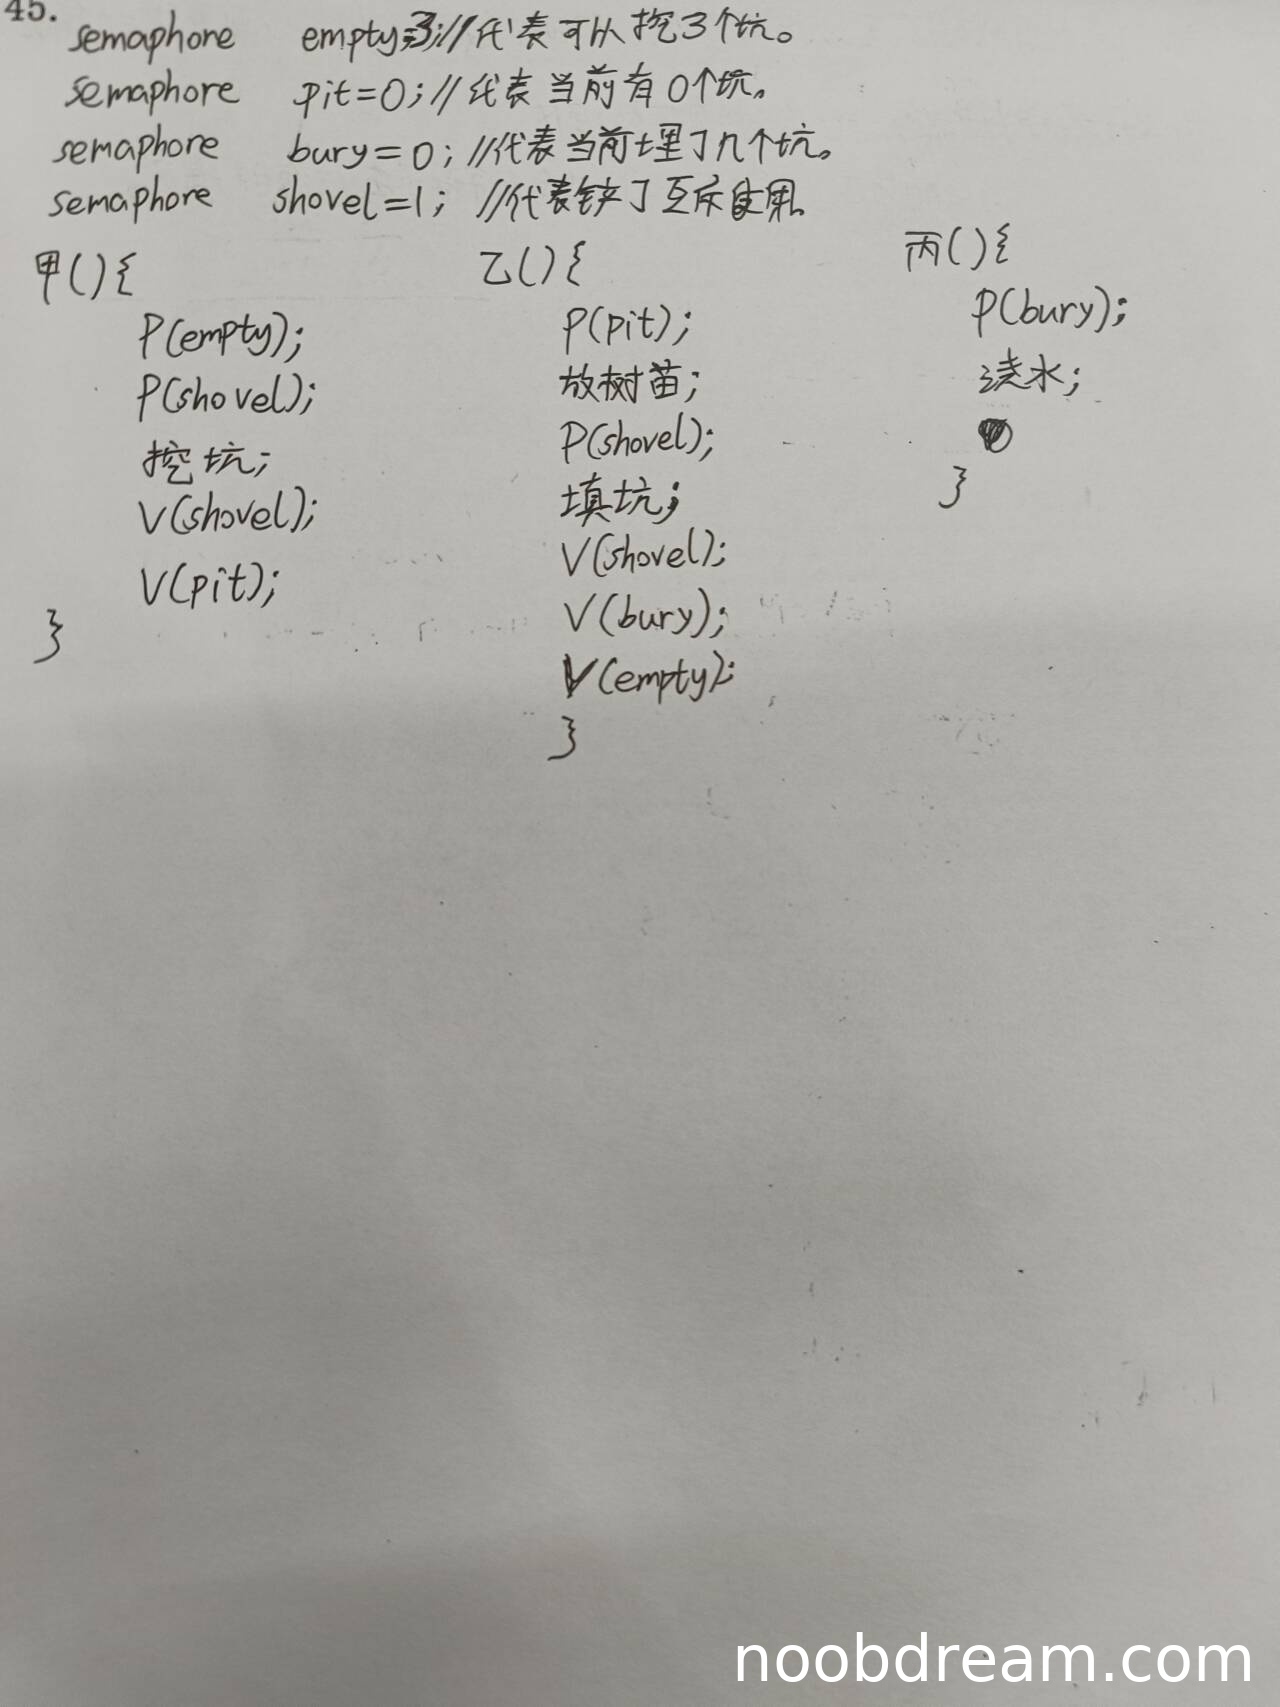 45.
semaphore empty=3; //代表可以挖3个坑。
semaphore pit=0; //代表当前有0个坑。
semaphore bury=0; //代表当前埋了几个坑。
semaphore shovel=1; //代表铲子互斥使用。
甲(){
P(empty);
P(shovel);
挖坑;
V(shovel);
V(pit);
}
乙(){
P(pit);
放树苗;
P(shovel);
填坑;
V(shovel);
V(bury);
V(empty);
}
丙(){
P(bury);
浇水;
}
noobdream.com